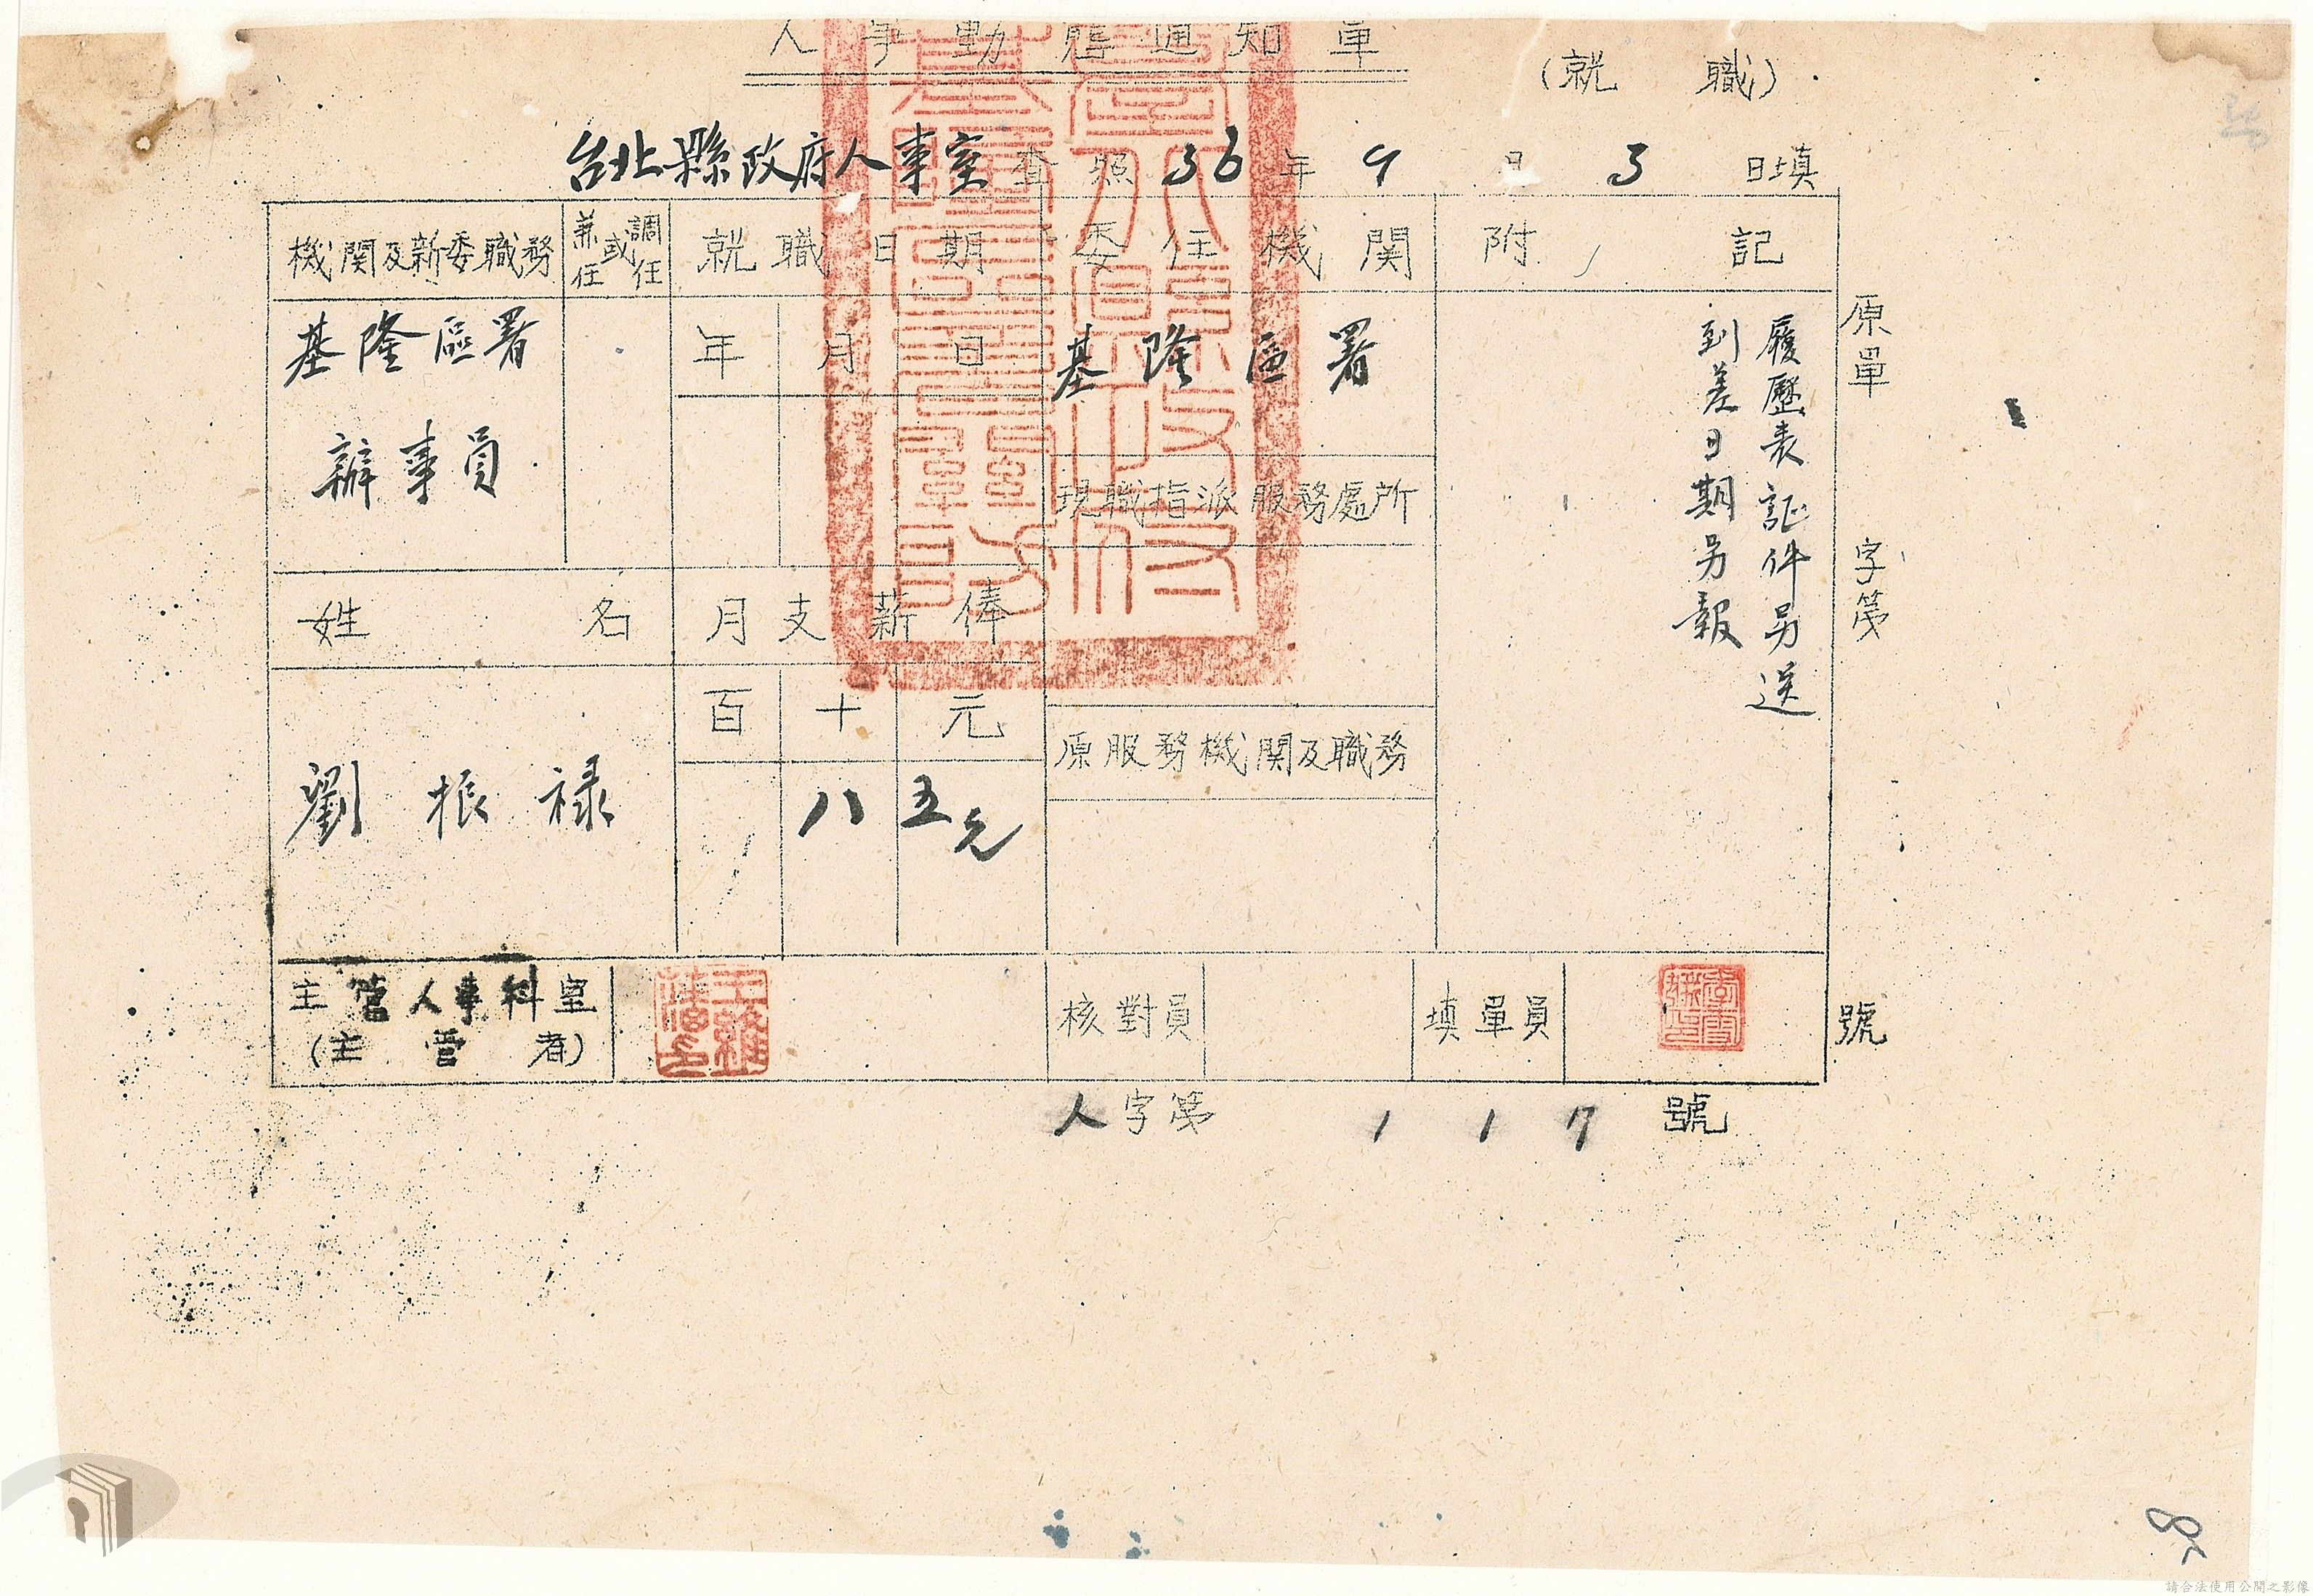 人事動態通知單
(就職)
台北縣政府人事室查照 36年9月3日填
機関及新委職務
兼任或調任
就職日期
委任機関
附記
基隆區署
辦事員
年月日
基隆區署
履歷表証件另送
到差日期另報
現職指派服務處所
姓名
月支薪俸
百十元
劉振祿
八五元
原服務機関及職務
主管人事科室
(主管者)
核對員
填單員
原單字第號
人字第117號
請合法使用公開之影像